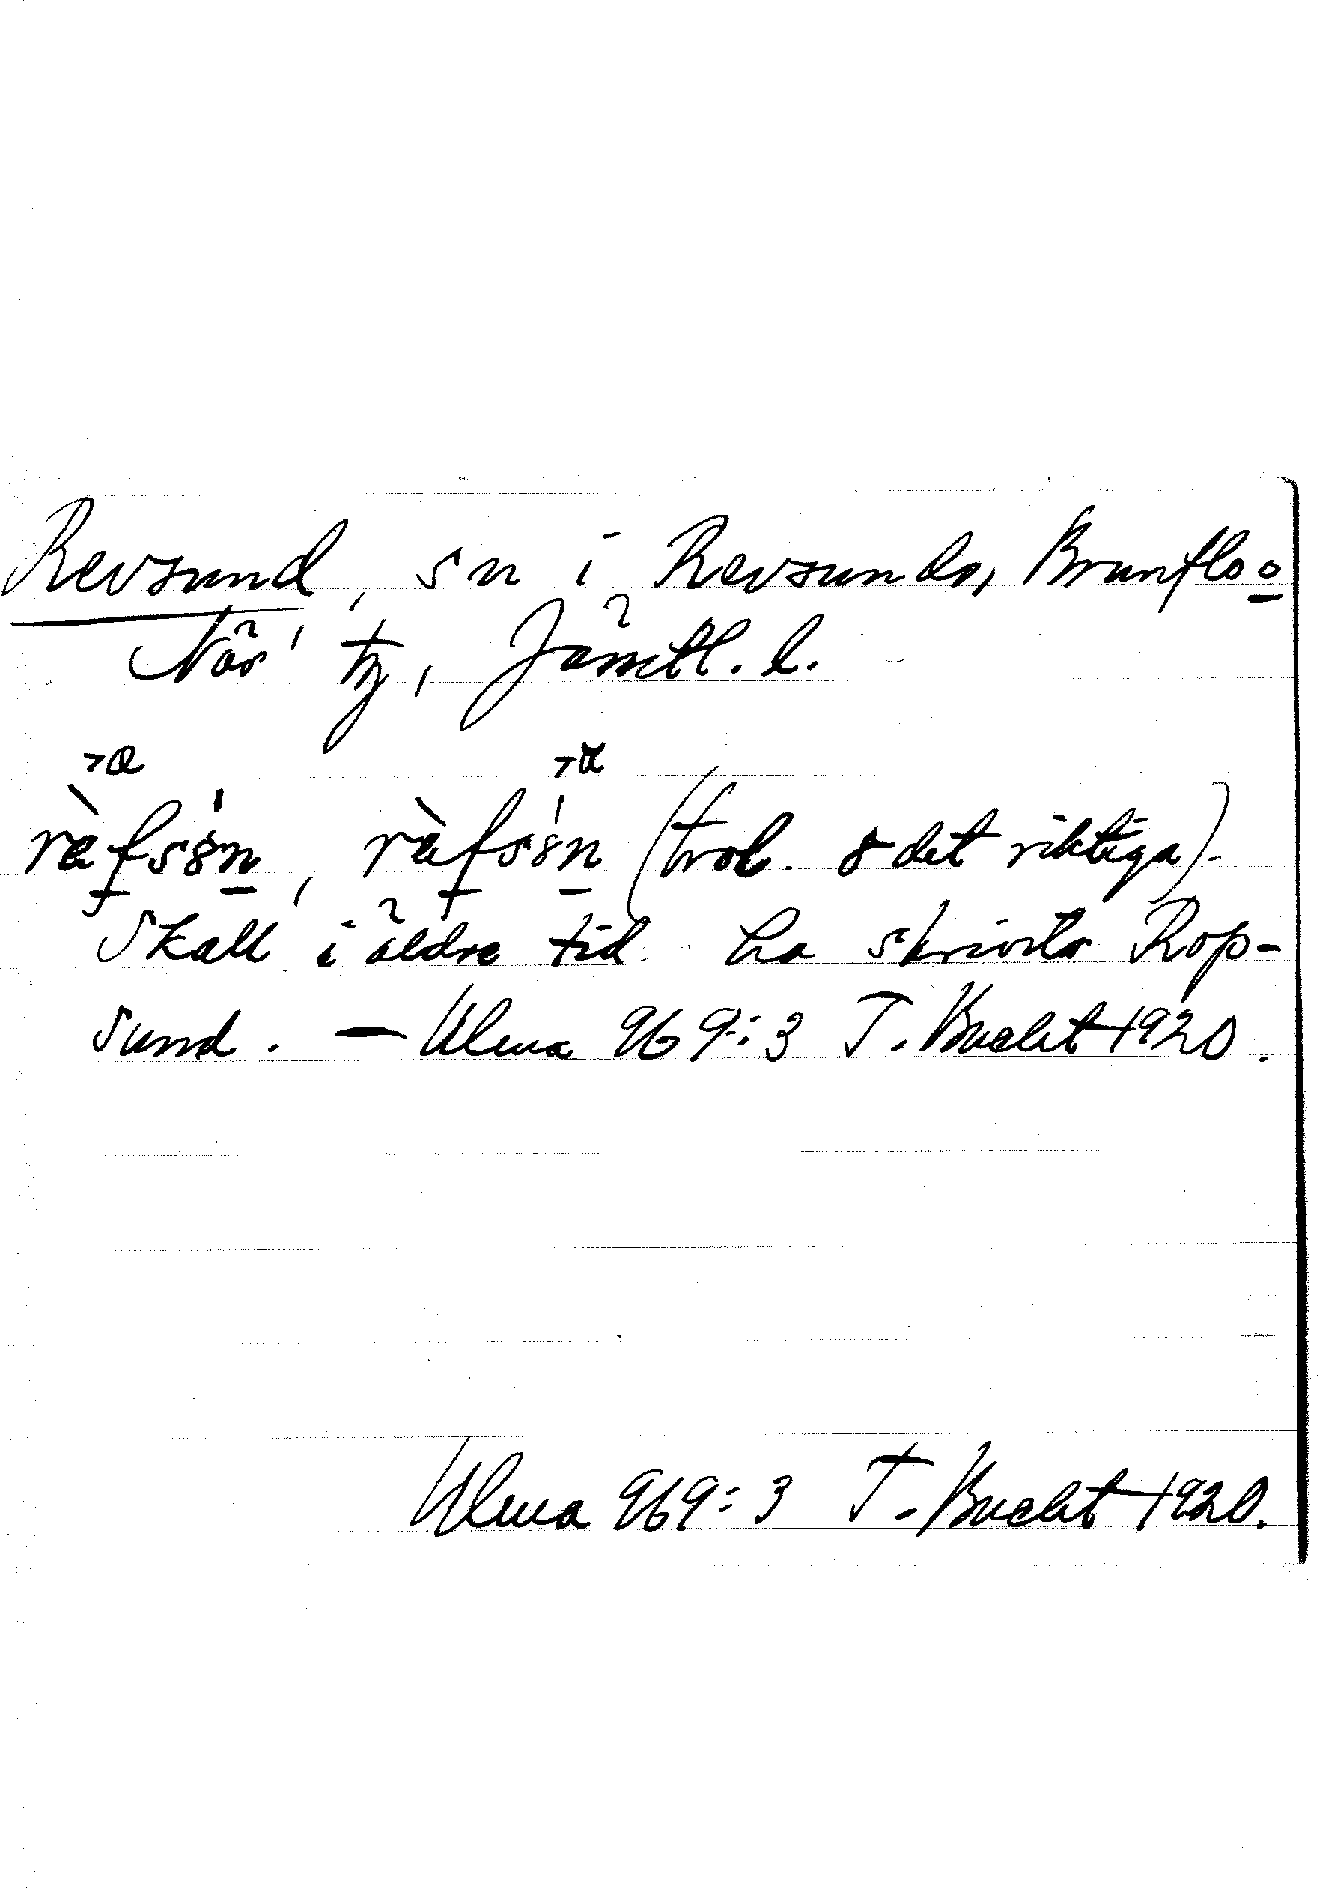 Revsund, sn i Revsunds, Brunflo o
Näs' tg, Jämtl. l.
ræ̀fsȣn, ràfsȣn (trol. ȣ det riktiga).
Skall i äldre tid ha skrivits Rop-
sund. — Ulma 969:3 T. Bucht 1920.
Ulma 969:3 T. Bucht 1920.